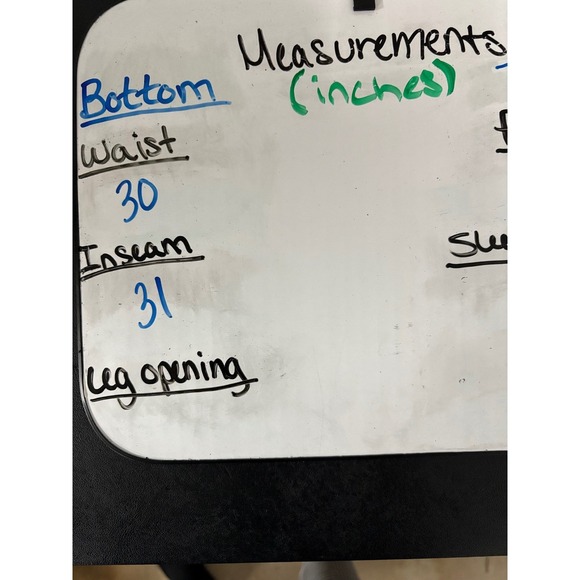 Measurements
(inches)
Bottom
Waist
30
Inseam
31
Leg opening